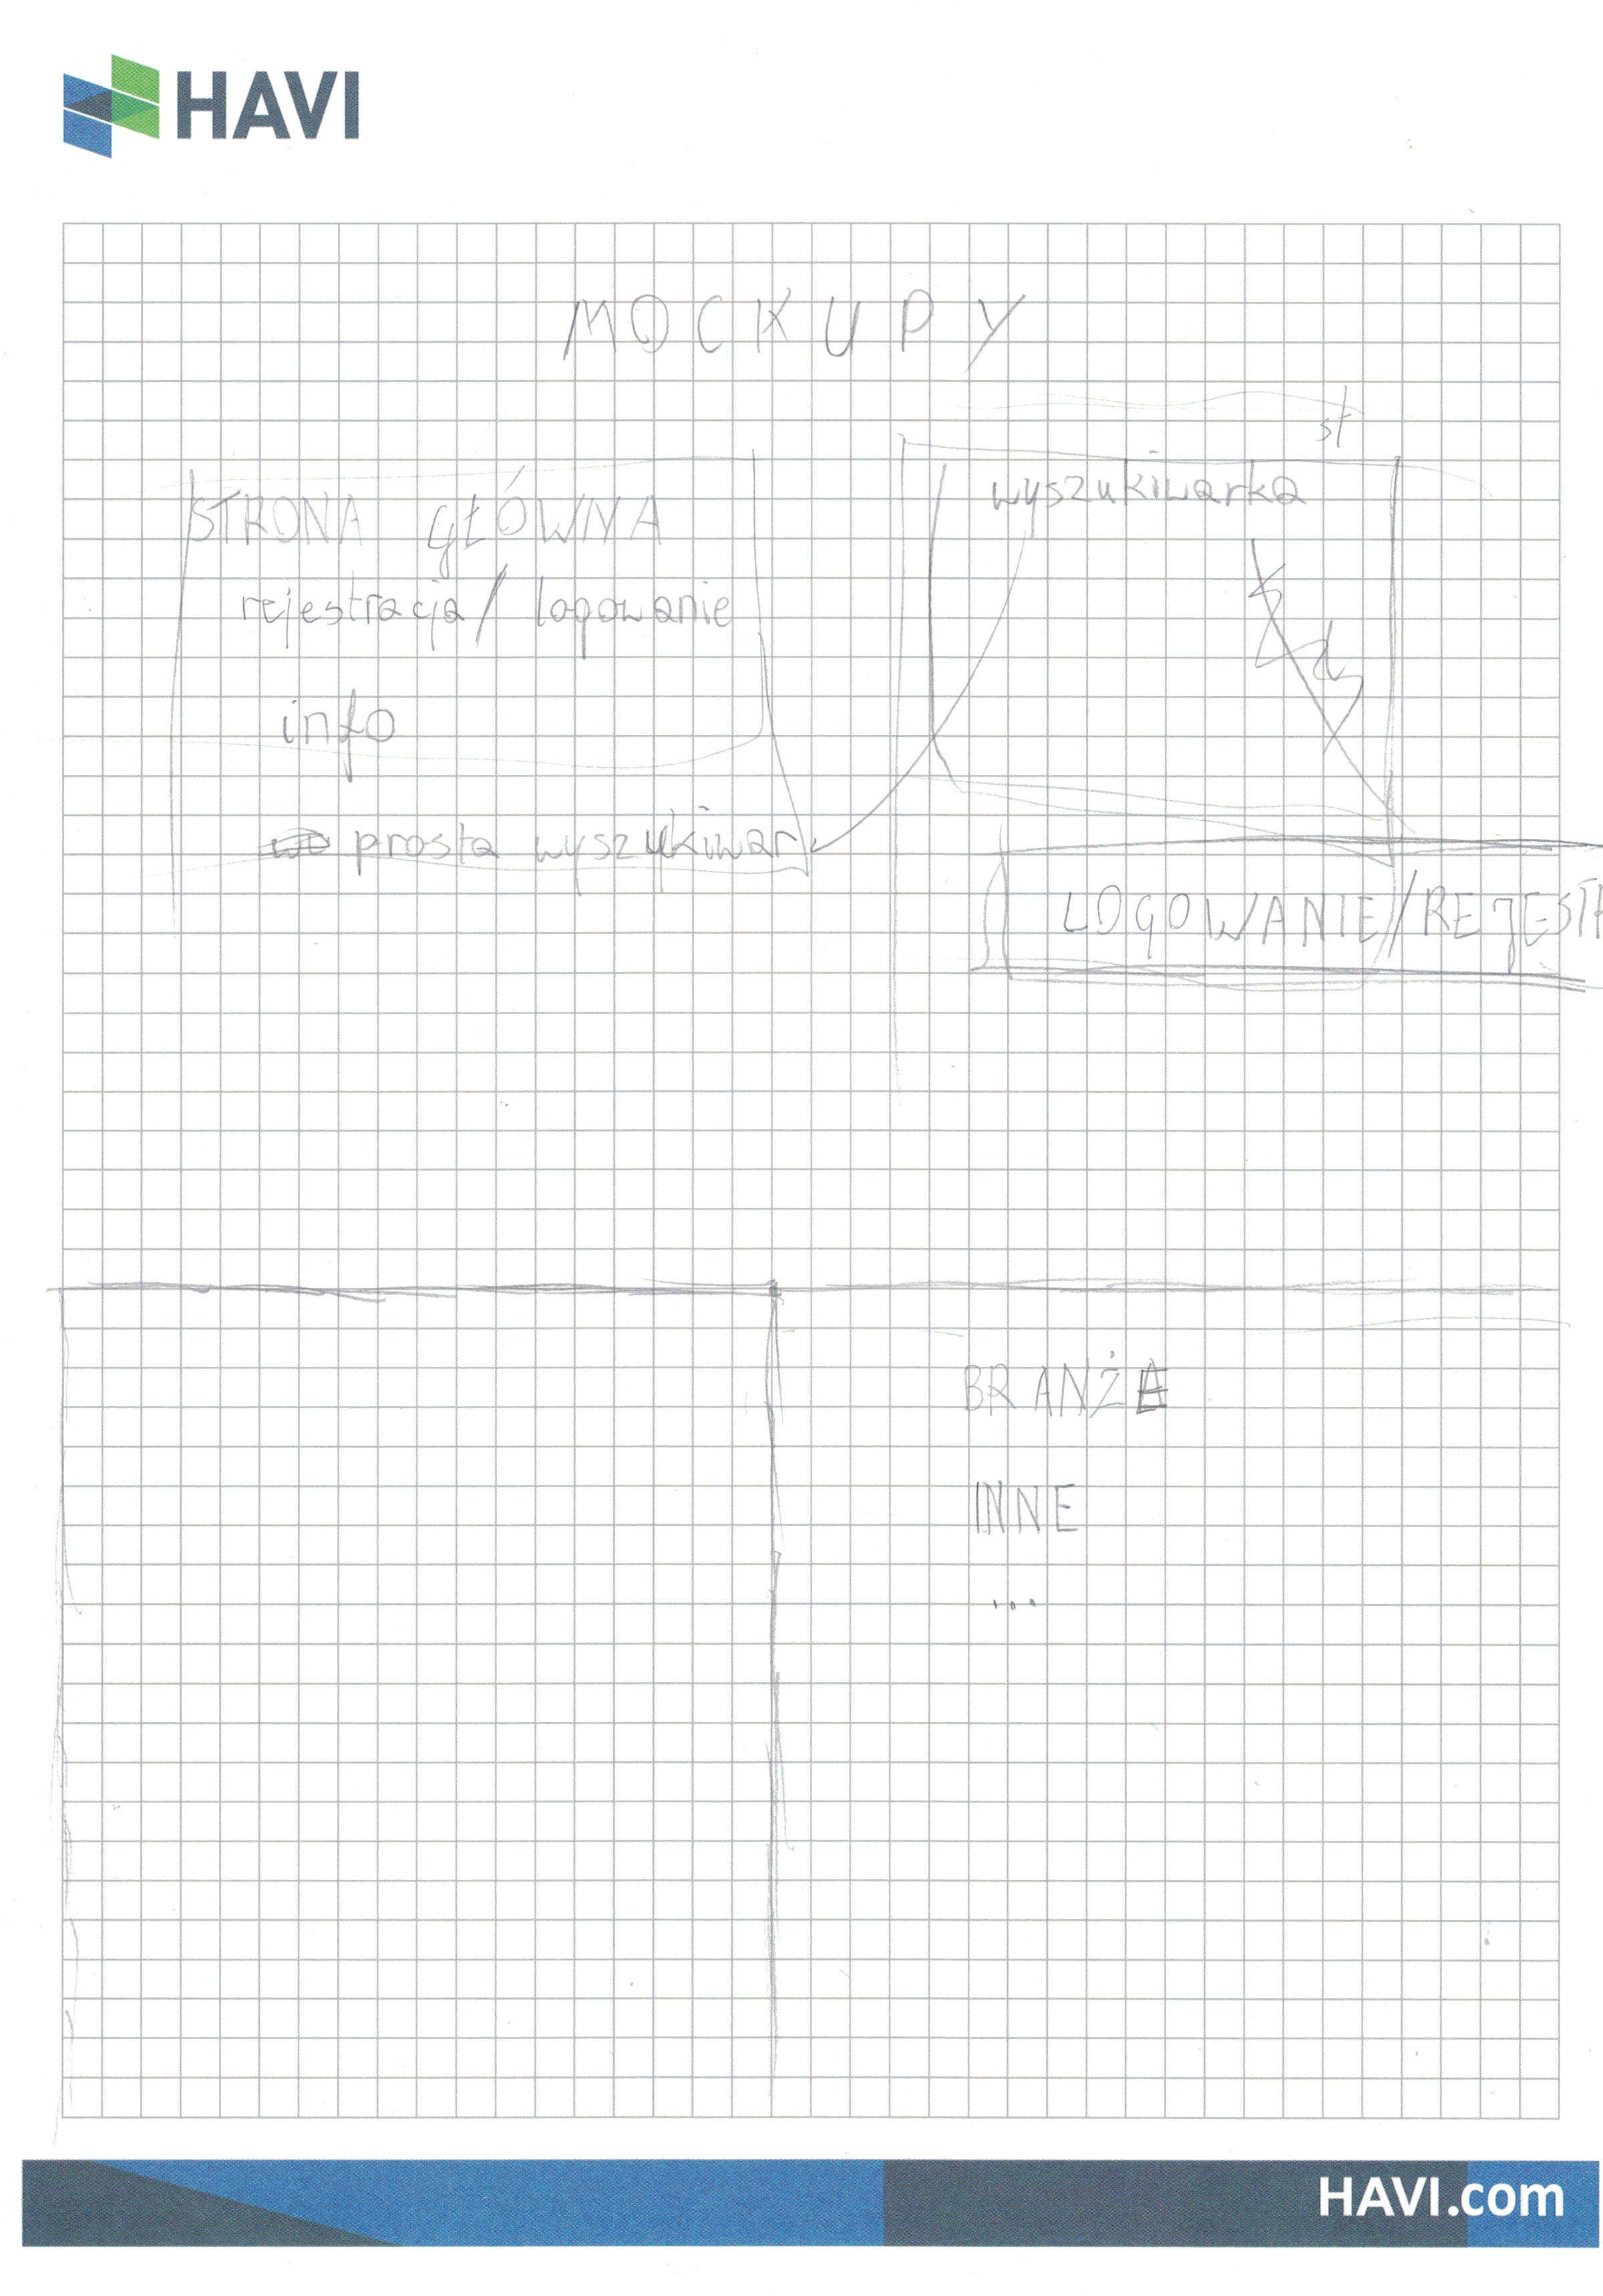 HAVI
MOCKUPY
STRONA GŁÓWNA
rejestracja/ logowanie
info
prosta wyszukiwar
st
wyszukiwarka
LOGOWANIE/REJEST
BRANŻE
INNE
...
HAVI.com